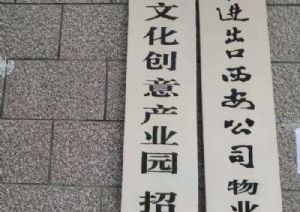 进出口西安公司物业
文化创意产业园 招